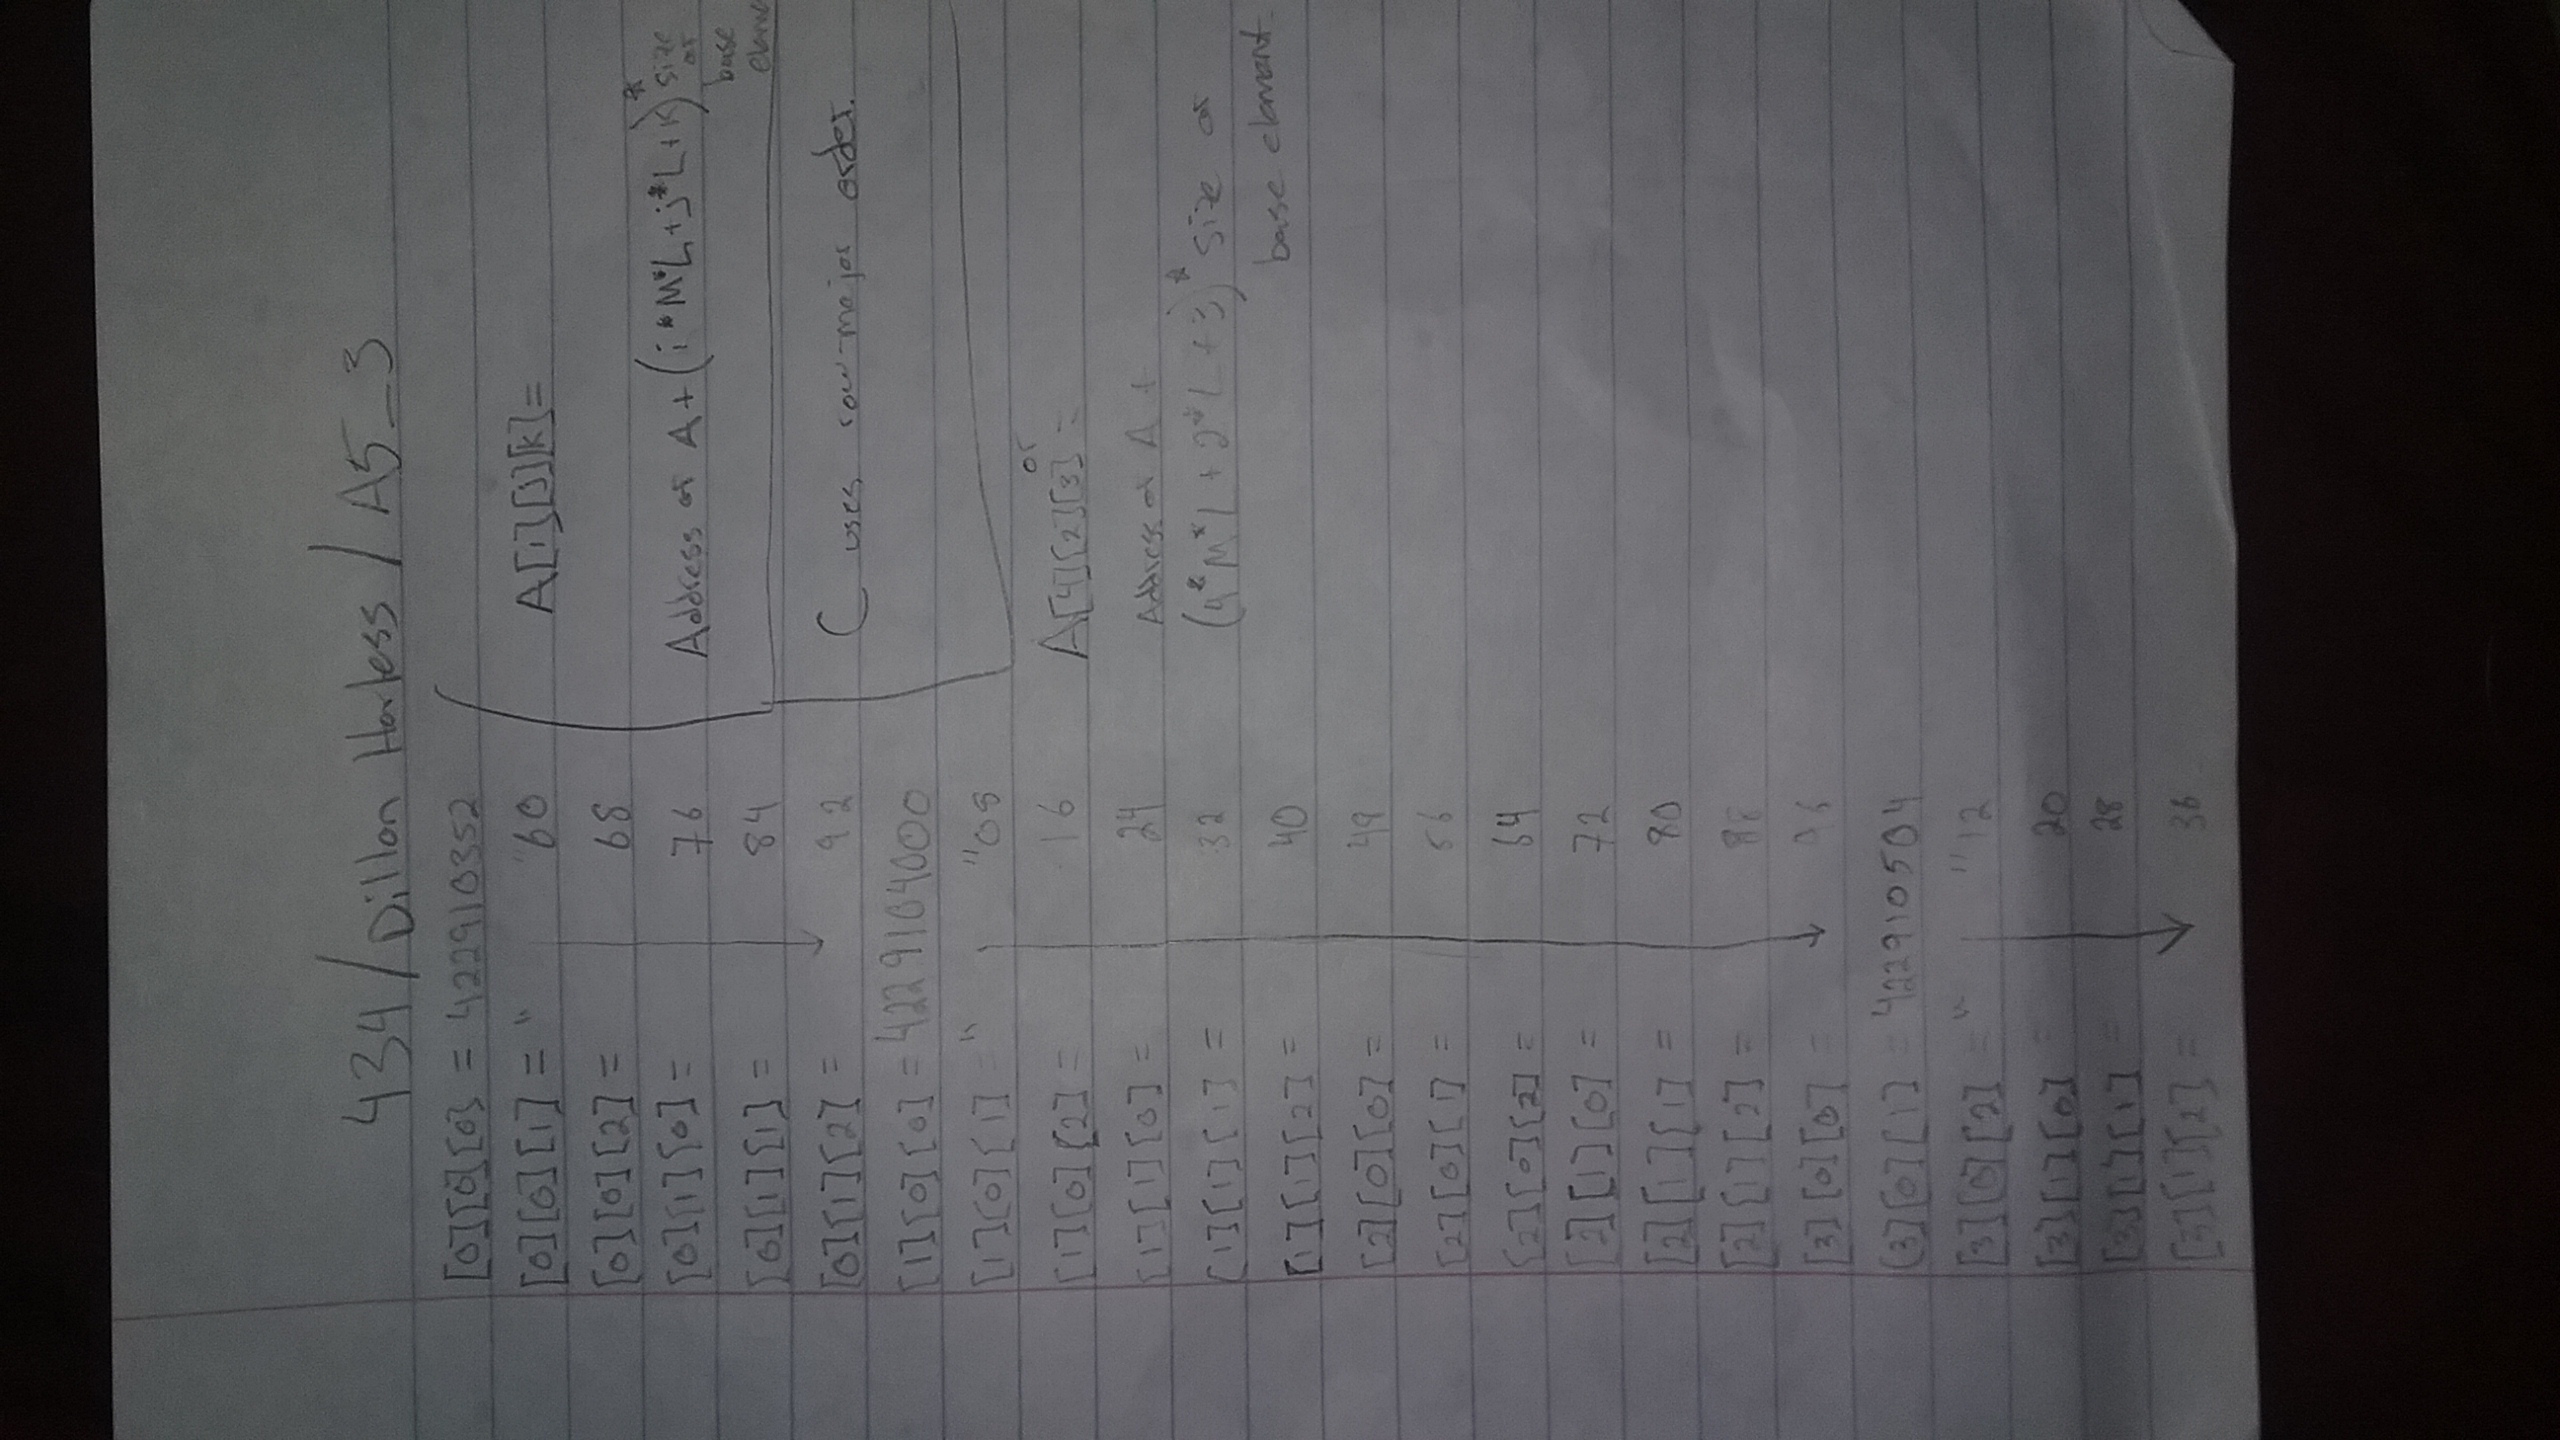 434/Dillon Harless / A5_3
[0][0][0] = 422910352
[0][0][1] = " "60
[0][0][2] = 68
[0][1][0] = 76
[0][1][1] = 84
[0][1][2] = 92
[1][0][0] = 422910400
[1][0][1] = " "08
[1][0][2] = 16
[1][1][0] = 24
[1][1][1] = 32
[1][1][2] = 40
[2][0][0] = 48
[2][0][1] = 56
[2][0][2] = 64
[2][1][0] = 72
[2][1][1] = 80
[2][1][2] = 88
[3][0][0] = 96
[3][0][1] = 422910504
[3][0][2] = " "12
[3][1][0] = 20
[3][1][1] = 28
[3][1][2] = 36
A[i][j][k]=
Address of A+(i*M*L+j*L+k)* size of
base
elem
C uses row-major order.
or
A[4][2][3] =
Address of A +
(4*M*L + 2*L + 3)* size of
base element